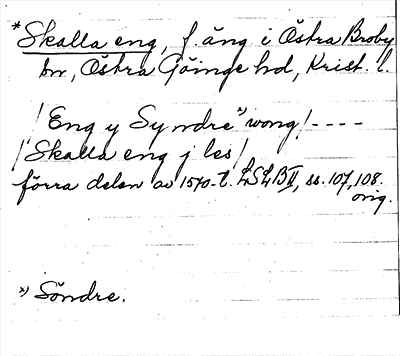 *Skalla eng, f. äng i Östra Broby
sn, Östra Göinge hd, Krist. l.
/Eng y Syndre *) wong/----
/Skalla eng j les/
förra delen av 1570-t. LSLB II, ss. 107, 108.
orig.
*) Söndre.